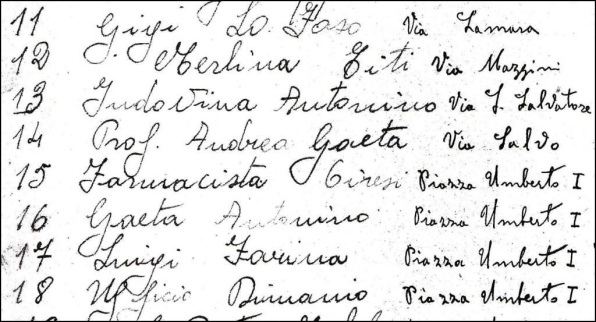 11 Gigi Lo Faso Via Lamara
12 Merlina Titi Via Mazzini
13 Indovina Antonino Via S. Salvatore
14 Prof. Andrea Gaeta Via Salvo
15 Farmacista Ciresi Piazza Umberto I
16 Gaeta Antonino Piazza Umberto I
17 Luigi Farina Piazza Umberto I
18 Ufficio Piazza Umberto I